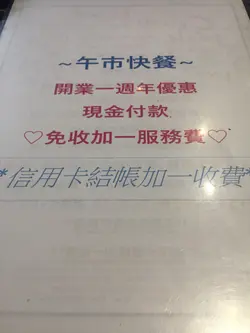 ~午市快餐~
開業一週年優惠
現金付款
♡免收加一服務費♡
*信用卡結帳加一收費*